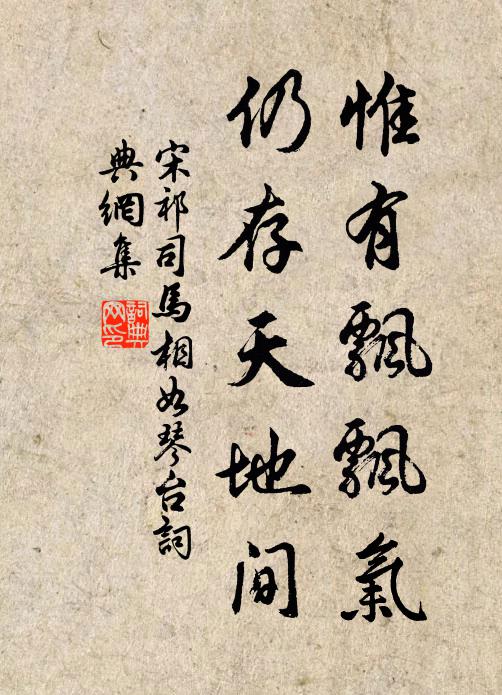 惟有飄飄氣
仍存天地間
宋祁司馬相如琴台詞
典網集
詞典
网印